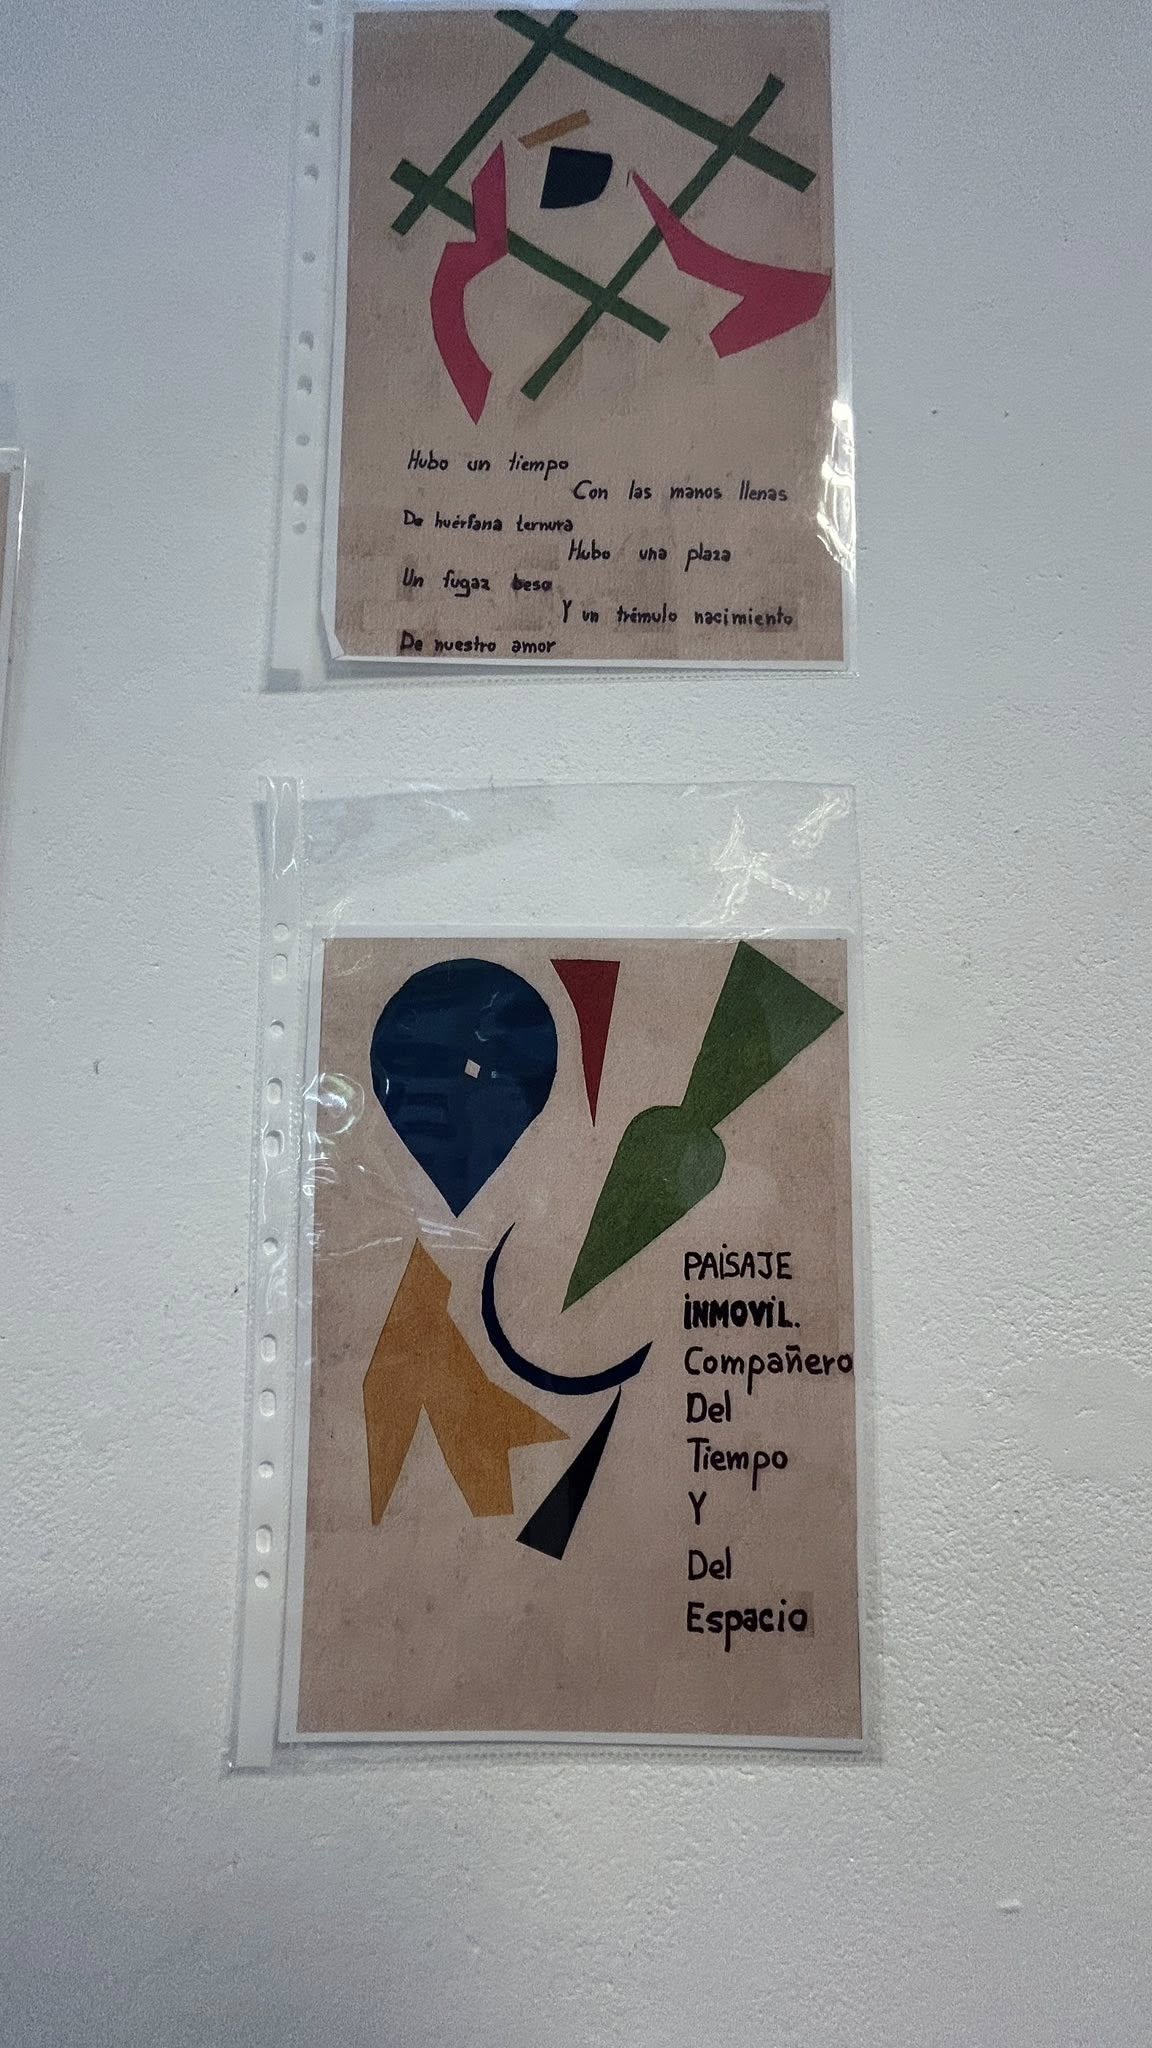 Hubo un tiempo
Con las manos llenas
De huérfana ternura
Hubo una plaza
Un fugaz beso
Y un trémulo nacimiento
De nuestro amor
PAiSAJE
iNMOViL.
Compañero
Del
Tiempo
Y
Del
Espacio